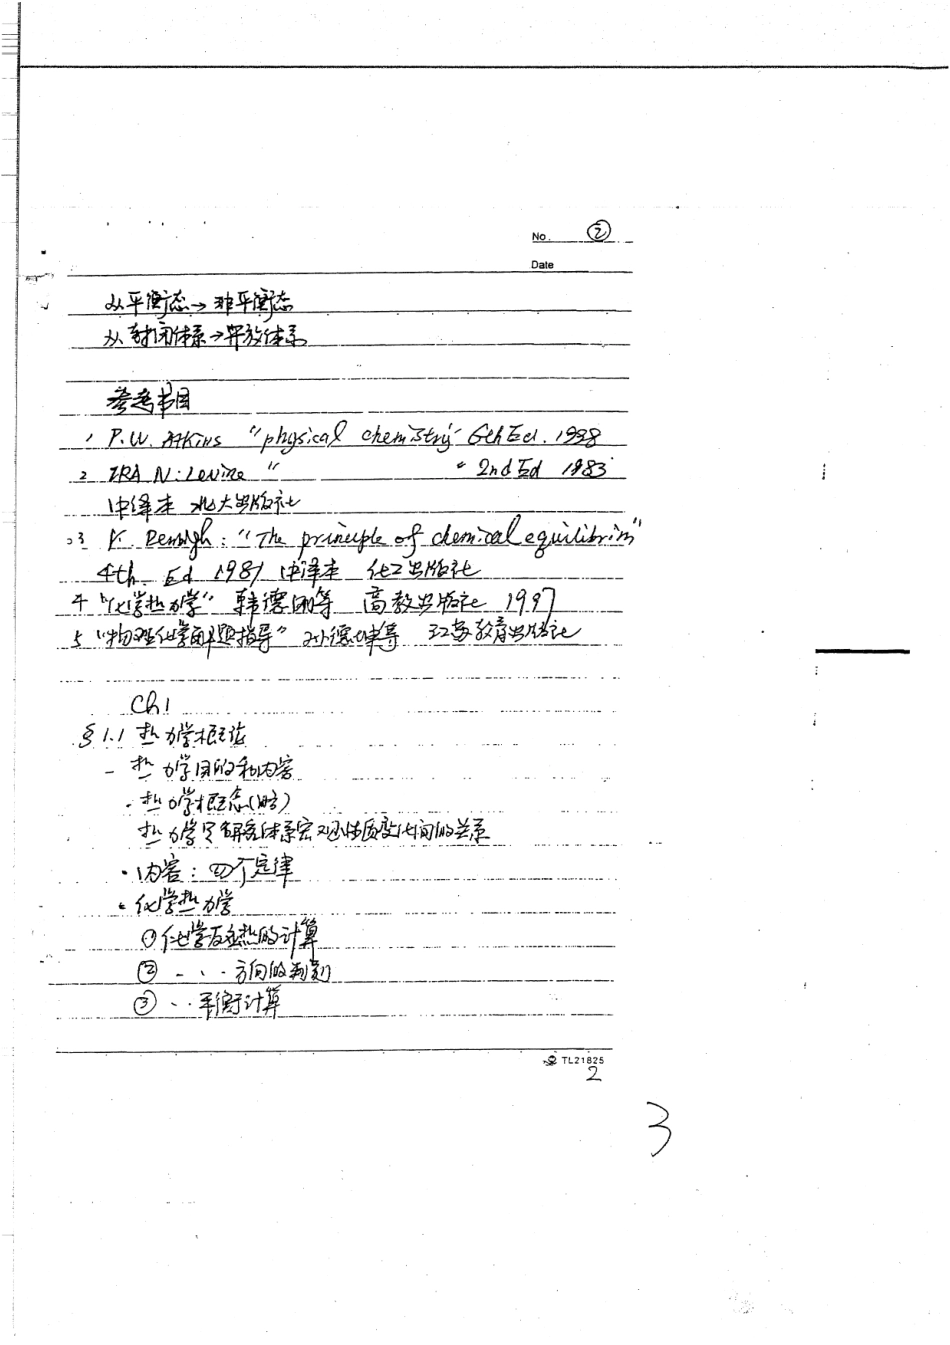 No. ②
Date
从平衡态→非平衡态
从封闭体系→开放体系
参考书目
1 P.W. Atkins "physical chemistry" 6th Ed. 1998
2 IRA N. Levine " " 2nd Ed 1983
中译本 北大出版社
3 K. Denbigh: "The principle of chemical equilibrim"
4th Ed 1981 中译本 化工出版社
4 "化学热力学" 韩德刚等 高教出版社 1997
5 "物理化学解题指导" 孙德坤等 江苏教育出版社
Ch1
§1.1 热力学概论
- 热力学目的和内容
·热力学概念(略)
热力学只研究体系宏观性质变化间的关系
·内容:四个定律
·化学热力学
①化学反应热的计算
② - · · 方向的判别
③ · · 平衡计算
TL21825
2
3